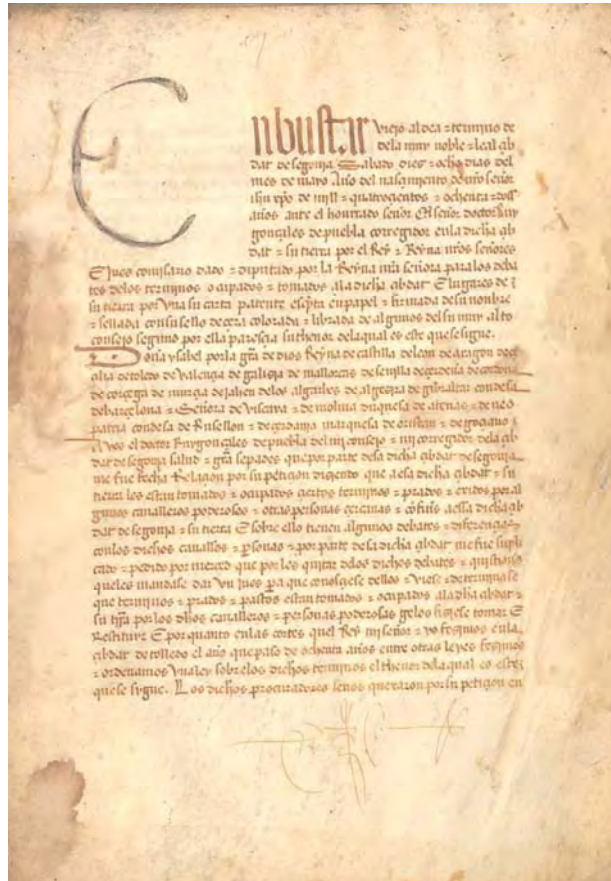 En bustar viejo aldea ⁊ termino de
dela muy noble ⁊ leal çib
dat de segouia Sabado dies ⁊ ocho dias del
mes de mayo Año del nasçimiento de nr̃o señor
ihu xp̃o de mill ⁊ quatroçientos ⁊ ochenta ⁊ doss
años ante el honrrado señor El señor doctor Ruy
gonçales de puebla corregidor enla dicha çib
dat ⁊ su tierra por el Rey ⁊ Reyna nr̃os señores
E jues comisario dado ⁊ diputado por la Reyna nr̃a señora paralos deba
tes delos terminos ocupados ⁊ tomados ala dicha çibdat E lugares de
su tierra por vna su carta patente escp̃ta en papel ⁊ firmada desu nonbre
⁊ sellada consu sello de çera colorada ⁊ librada de algunos del su muy alto
consejo segund por ella paresçia su thenor dela qual es este que se sigue.
Doña ysabel por la grã de dios Reyna de castilla de leon de aragon de çeçi
çilia de toledo de valençia de galisia de mallorcas de seuilla de çerdeña de cordoua
de corçega de murçia de jahen delos algarbes de algesira de gibraltar condesa
de barçelona ⁊ Señora de viscaya ⁊ de molina duquesa de atenas ⁊ de neo
patria condesa de Rusellon ⁊ de çerdania marquesa de oristan ⁊ de goçiano
A vos el doctor Ruy gonçales de puebla del mi consejo ⁊ mi corregidor dela çib
dat de segouia salud ⁊ grã sepades que por parte desa dicha çibdat de segouia
me fue fecha Relaçion por su petiçion disiendo que a esa dicha çibdat ⁊ su
tierra les estan tomados ⁊ ocupados çiertos terminos ⁊ prados ⁊ exidos por al
gunos caualleros poderosos ⁊ otras personas çercanas ⁊ a essa dicha çib
dat de segouia ⁊ su tierra E sobre ello tienen algunos debates ⁊ diferençias
conlos dichos caualł̃os ⁊ p̃sonas ⁊ por parte desa dicha çibdat me fue supli
cado ⁊ pedido por merçed que por les quitar delos dichos debates ⁊
queles mandase dar vn jues p̃a que conosçiese dellos ⁊ viese ⁊ determinase
que terminos ⁊ prados ⁊ pastos estan tomados ⁊ ocupados ala dha çibdat ⁊
su tr̃ra por los dhos caualleros ⁊ personas poderosas gelos fisiese tomar E
Restituyr E por quanto enlas cortes quel Rey mi señor ⁊ yo fesimos enla
çibdat de toledo el año que paso de ochenta años entre otras leyes fesimos
⁊ ordenamos vna ley sobre los dichos terminos el thenor dela qual es este
que se sygue. Los dichos procuradores senos quexaron por su petiçion en